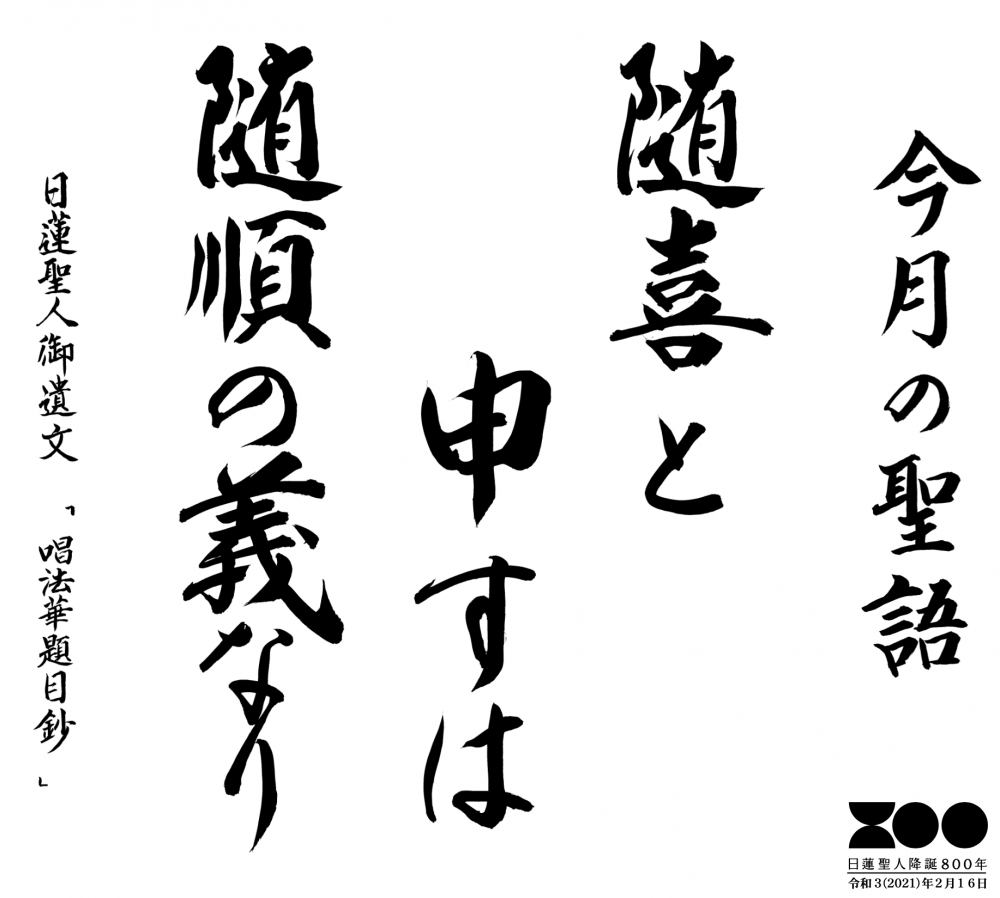 今月の聖語
随喜と
申すは
随順の義なり
日蓮聖人御遺文 「唱法華題目鈔」
日蓮聖人降誕800年
令和3(2021)年2月16日